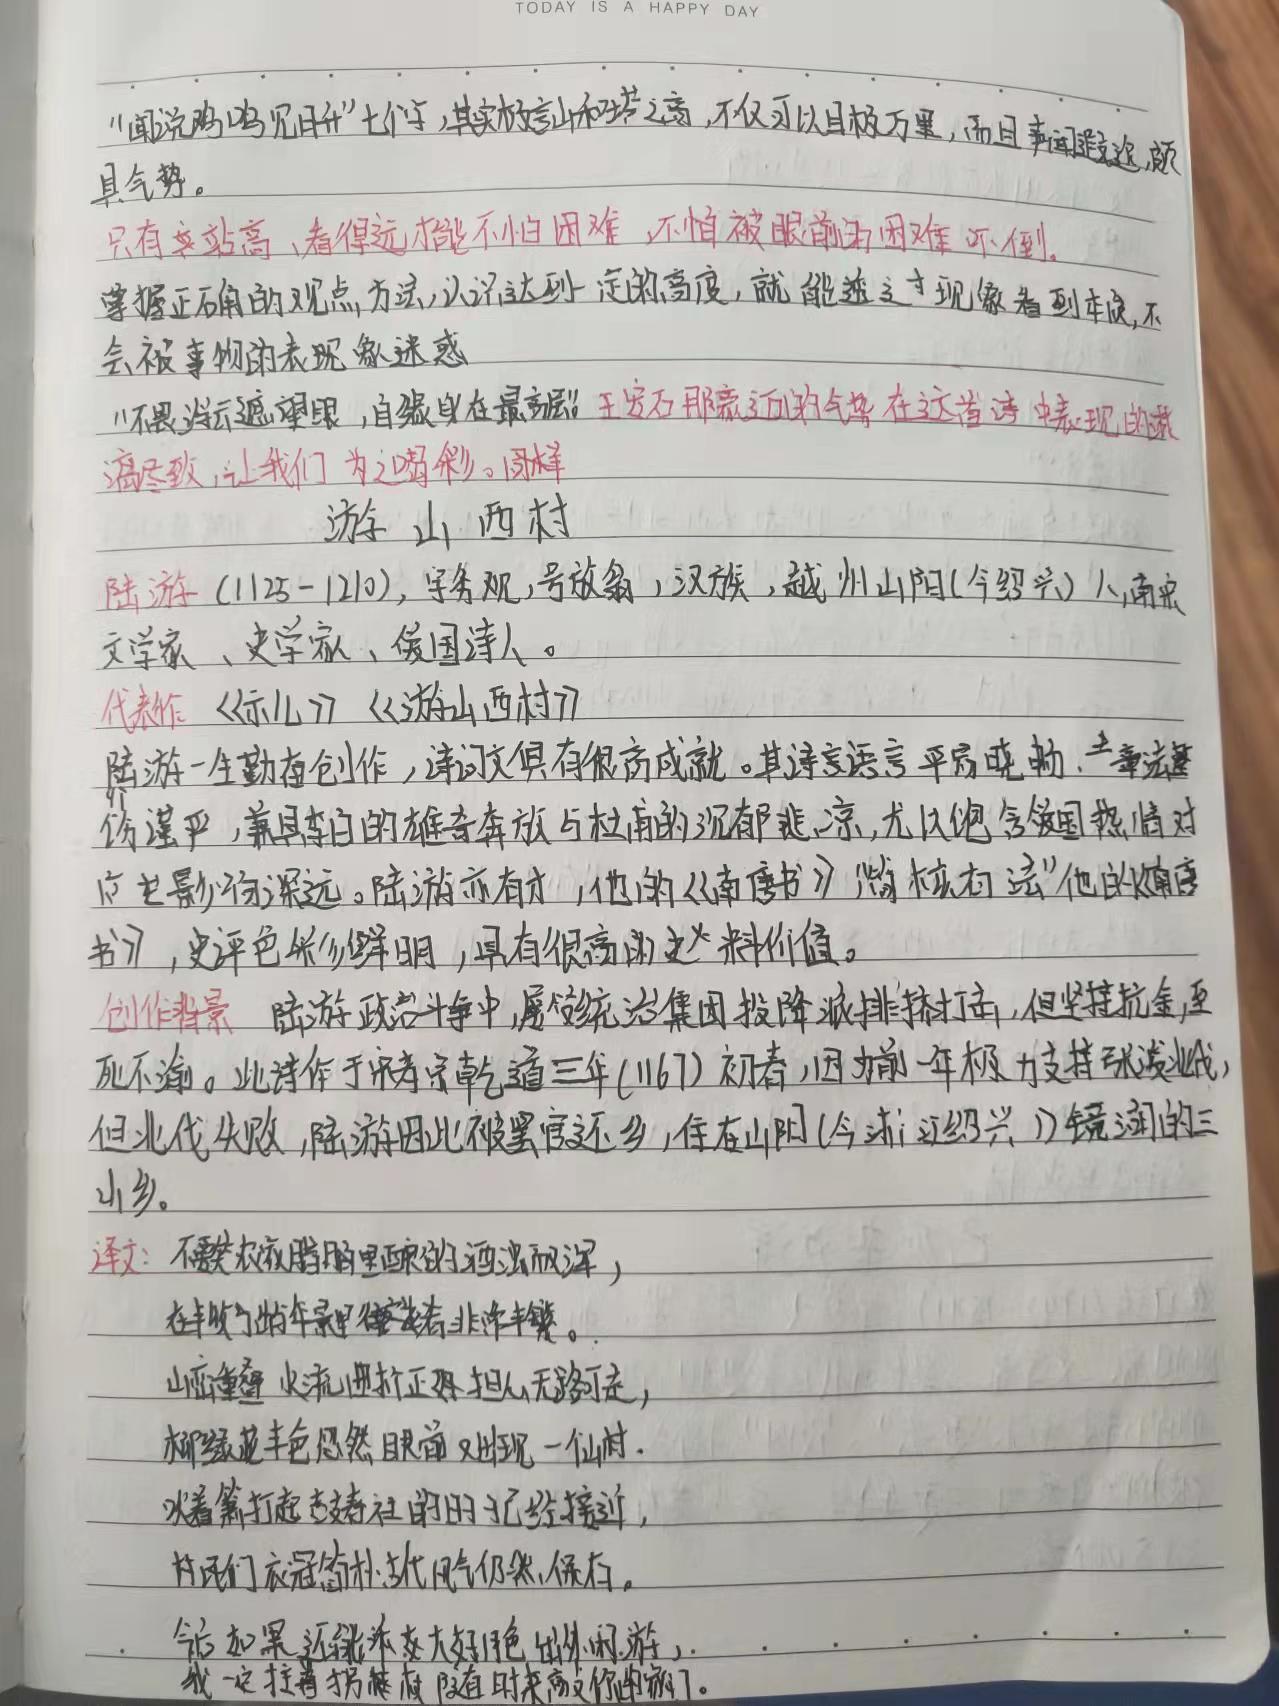 TODAY IS A HAPPY DAY
"闻说鸡鸣见日升"七个字,其实极言山和塔之高,不仅可以目极万里,而且事闻遐迩,颇
具气势。
只有站高、看得远才能不怕困难,不怕被眼前的困难吓倒。
掌握正确的观点方法,认识达到一定的高度,就能透过现象看到本质,不
会被事物的表现象迷惑
"不畏浮云遮望眼,自缘身在最高层"王安石那豪迈的气势在这首诗中表现的淋
漓尽致,让我们为之喝彩。同样
游山西村
陆游(1125-1210),字务观,号放翁,汉族,越州山阴(今绍兴)人,南宋
文学家、史学家、爱国诗人。
代表作 《示儿》《游山西村》
陆游一生勤奋创作,诗词文俱有很高成就。其诗言语言平易晓畅、章法整
饬谨严,兼具李白的雄奇奔放与杜甫的沉郁悲凉,尤以饱含爱国热情对
后世影响深远。陆游亦有才,他的《南唐书》"简核有法"他的《南唐
书》,史评色彩鲜明,具有很高的史料价值。
创作背景 陆游政治斗争中,屡受统治集团投降派排挤打击,但坚持抗金,至
死不渝。此诗作于宋孝宗乾道三年(1167)初春,因为前一年极力支持张浚北伐,
但北伐失败,陆游因此被罢官还乡,住在山阴(今浙江绍兴)镜湖的三
山乡。
译文: 不要笑农家腊月里酿的酒浊而浑,
在丰收的年景里待客菜肴非常丰繁。
山峦重叠水流曲折正担心无路可走,
柳绿花丰色忽然眼前又出现一个山村.
吹着箫打起鼓春社的日子已经接近,
村民们衣冠简朴古代风气仍然保存。
今后如果还能乘大好月色出外闲游,
我一定拄着拐杖随时来敲你的家门。